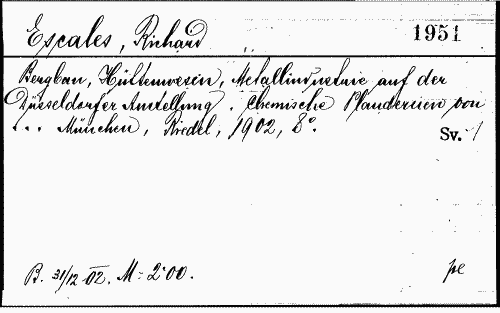 Escales, Richard
1951
Bergbau, Hüttenwesen, Metallindustrie auf der
Düsseldorfer Ausstellung. Chemische Plaudereien von
... München, Riedel, 1902, 8°.
Sv. 1
B. 31/12 02. M= 2·00.
pe